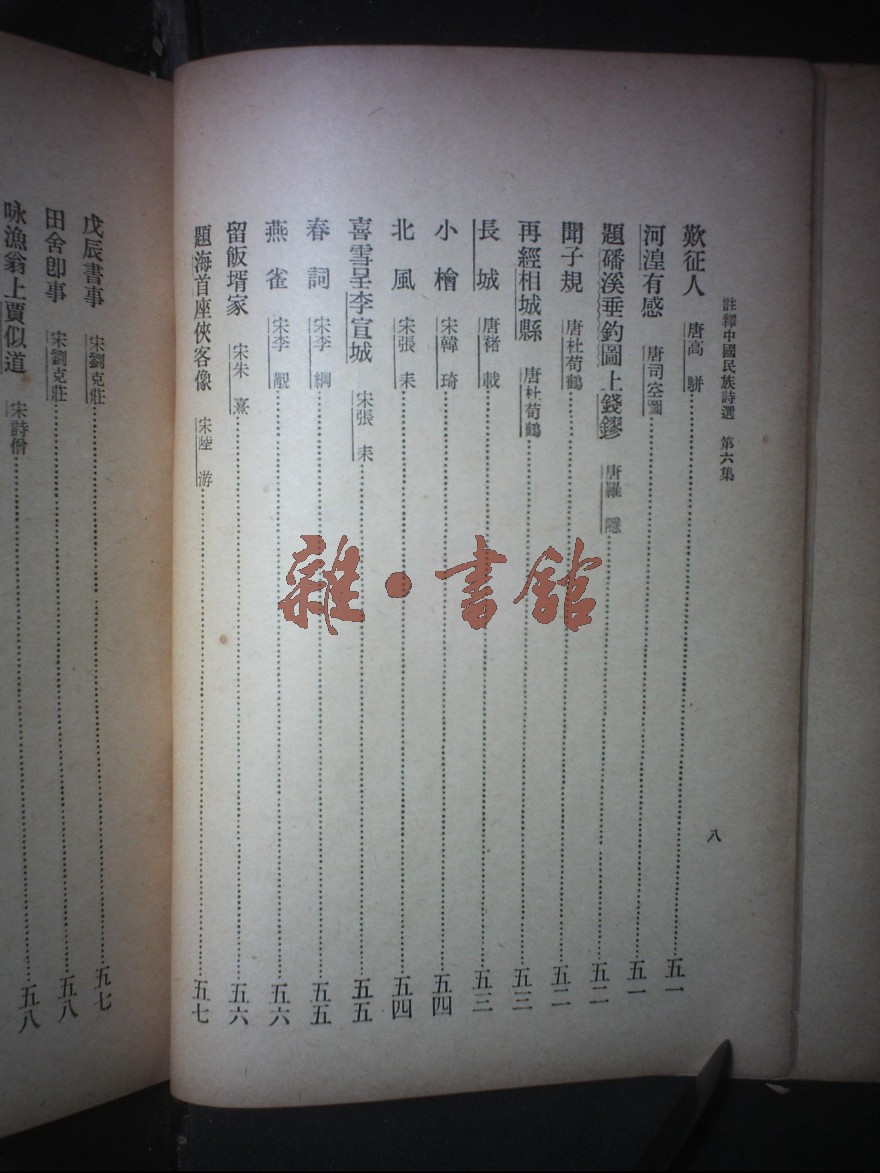 註釋中國民族詩選 第六集
八
歎征人 唐高駢 五一
河湟有感 唐司空圖 五一
題磻溪垂釣圖上錢鏐 唐羅隱 五二
聞子規 唐杜荀鶴 五二
再經相城縣 唐杜荀鶴 五三
長城 唐褚載 五三
小檜 宋韓琦 五四
北風 宋張耒 五四
喜雪呈李宣城 宋張耒 五五
春詞 宋李綱 五五
燕雀 宋李覯 五六
留飯壻家 宋朱熹 五六
題海首座俠客像 宋陸游 五七
戊辰書事 宋劉克莊 五七
田舍卽事 宋劉克莊 五八
咏漁翁上賈似道 宋詩僧 五八
雜·書館